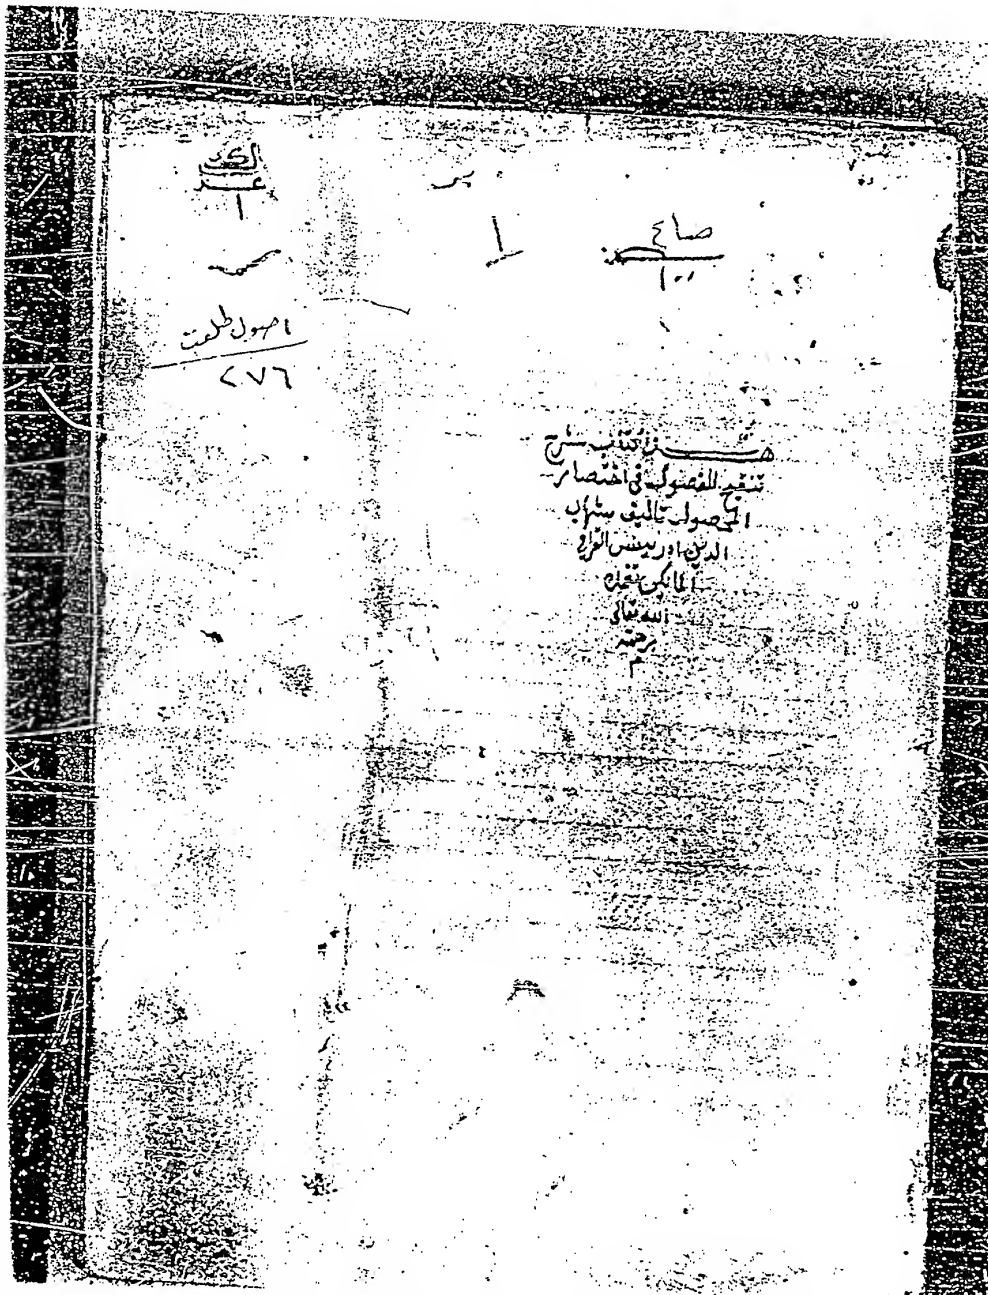 صاغ
١
اصول طلعت
٢٧٦
هذا كتاب شرح
تنقيح الفصول في اختصار
المحصول تاليف شهاب
الدين ادريس القرافي
المالكي تغمده
الله تعالى
برحمته
م